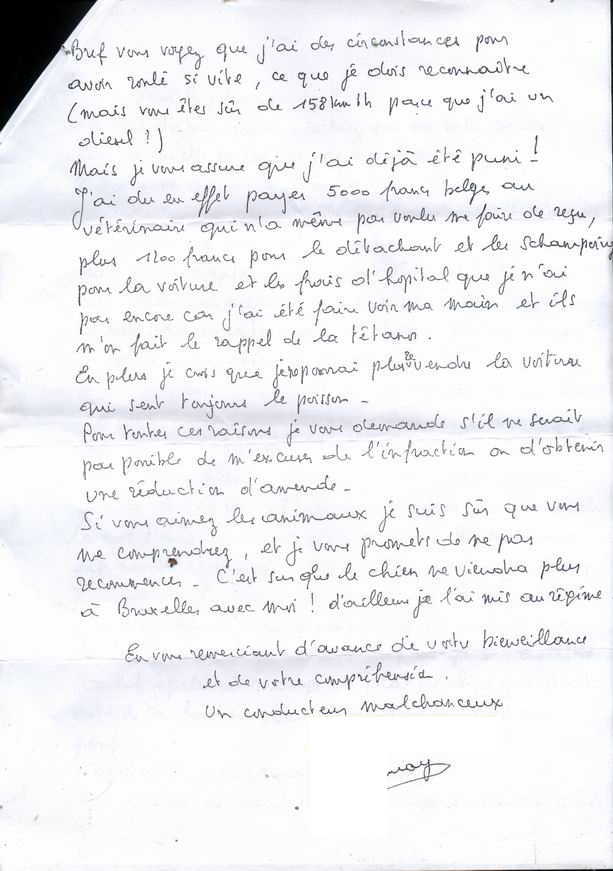 Bref vous voyez que j'ai des circonstances pour
avoir roulé si vite, ce que je dois reconnaître
(mais vous êtes sûr de 158 km/h parce que j'ai un
diesel ?)
Mais je vous assure que j'ai déjà été puni !
J'ai du en effet payer 5000 francs belges au
vétérinaire qui n'a même pas voulu me faire de reçu,
plus 1200 francs pour le détachant et les schampoing
pour la voiture et les frais d'hopital que je n'ai
pas encore car j'ai été faire voir ma main et ils
m'on fait le rappel de la têtanos.
En plus je crois que je pourrai plus revendre la voiture
qui sent toujours le poisson -
Pour toutes ces raisons je vous demande s'il ne serait
pas possible de m'excuser de l'infraction ou d'obtenir
une réduction d'amende -
Si vous aimez les animaux je suis sûr que vous
me comprendrez, et je vous promets de ne pas
recommencer - C'est sur que le chien ne viendra plus
à Bruxelles avec moi ! d'ailleurs je l'ai mis au régime
En vous remerciant d'avance de votre bienveillance
et de votre compréhension.
Un conducteur malchanceux